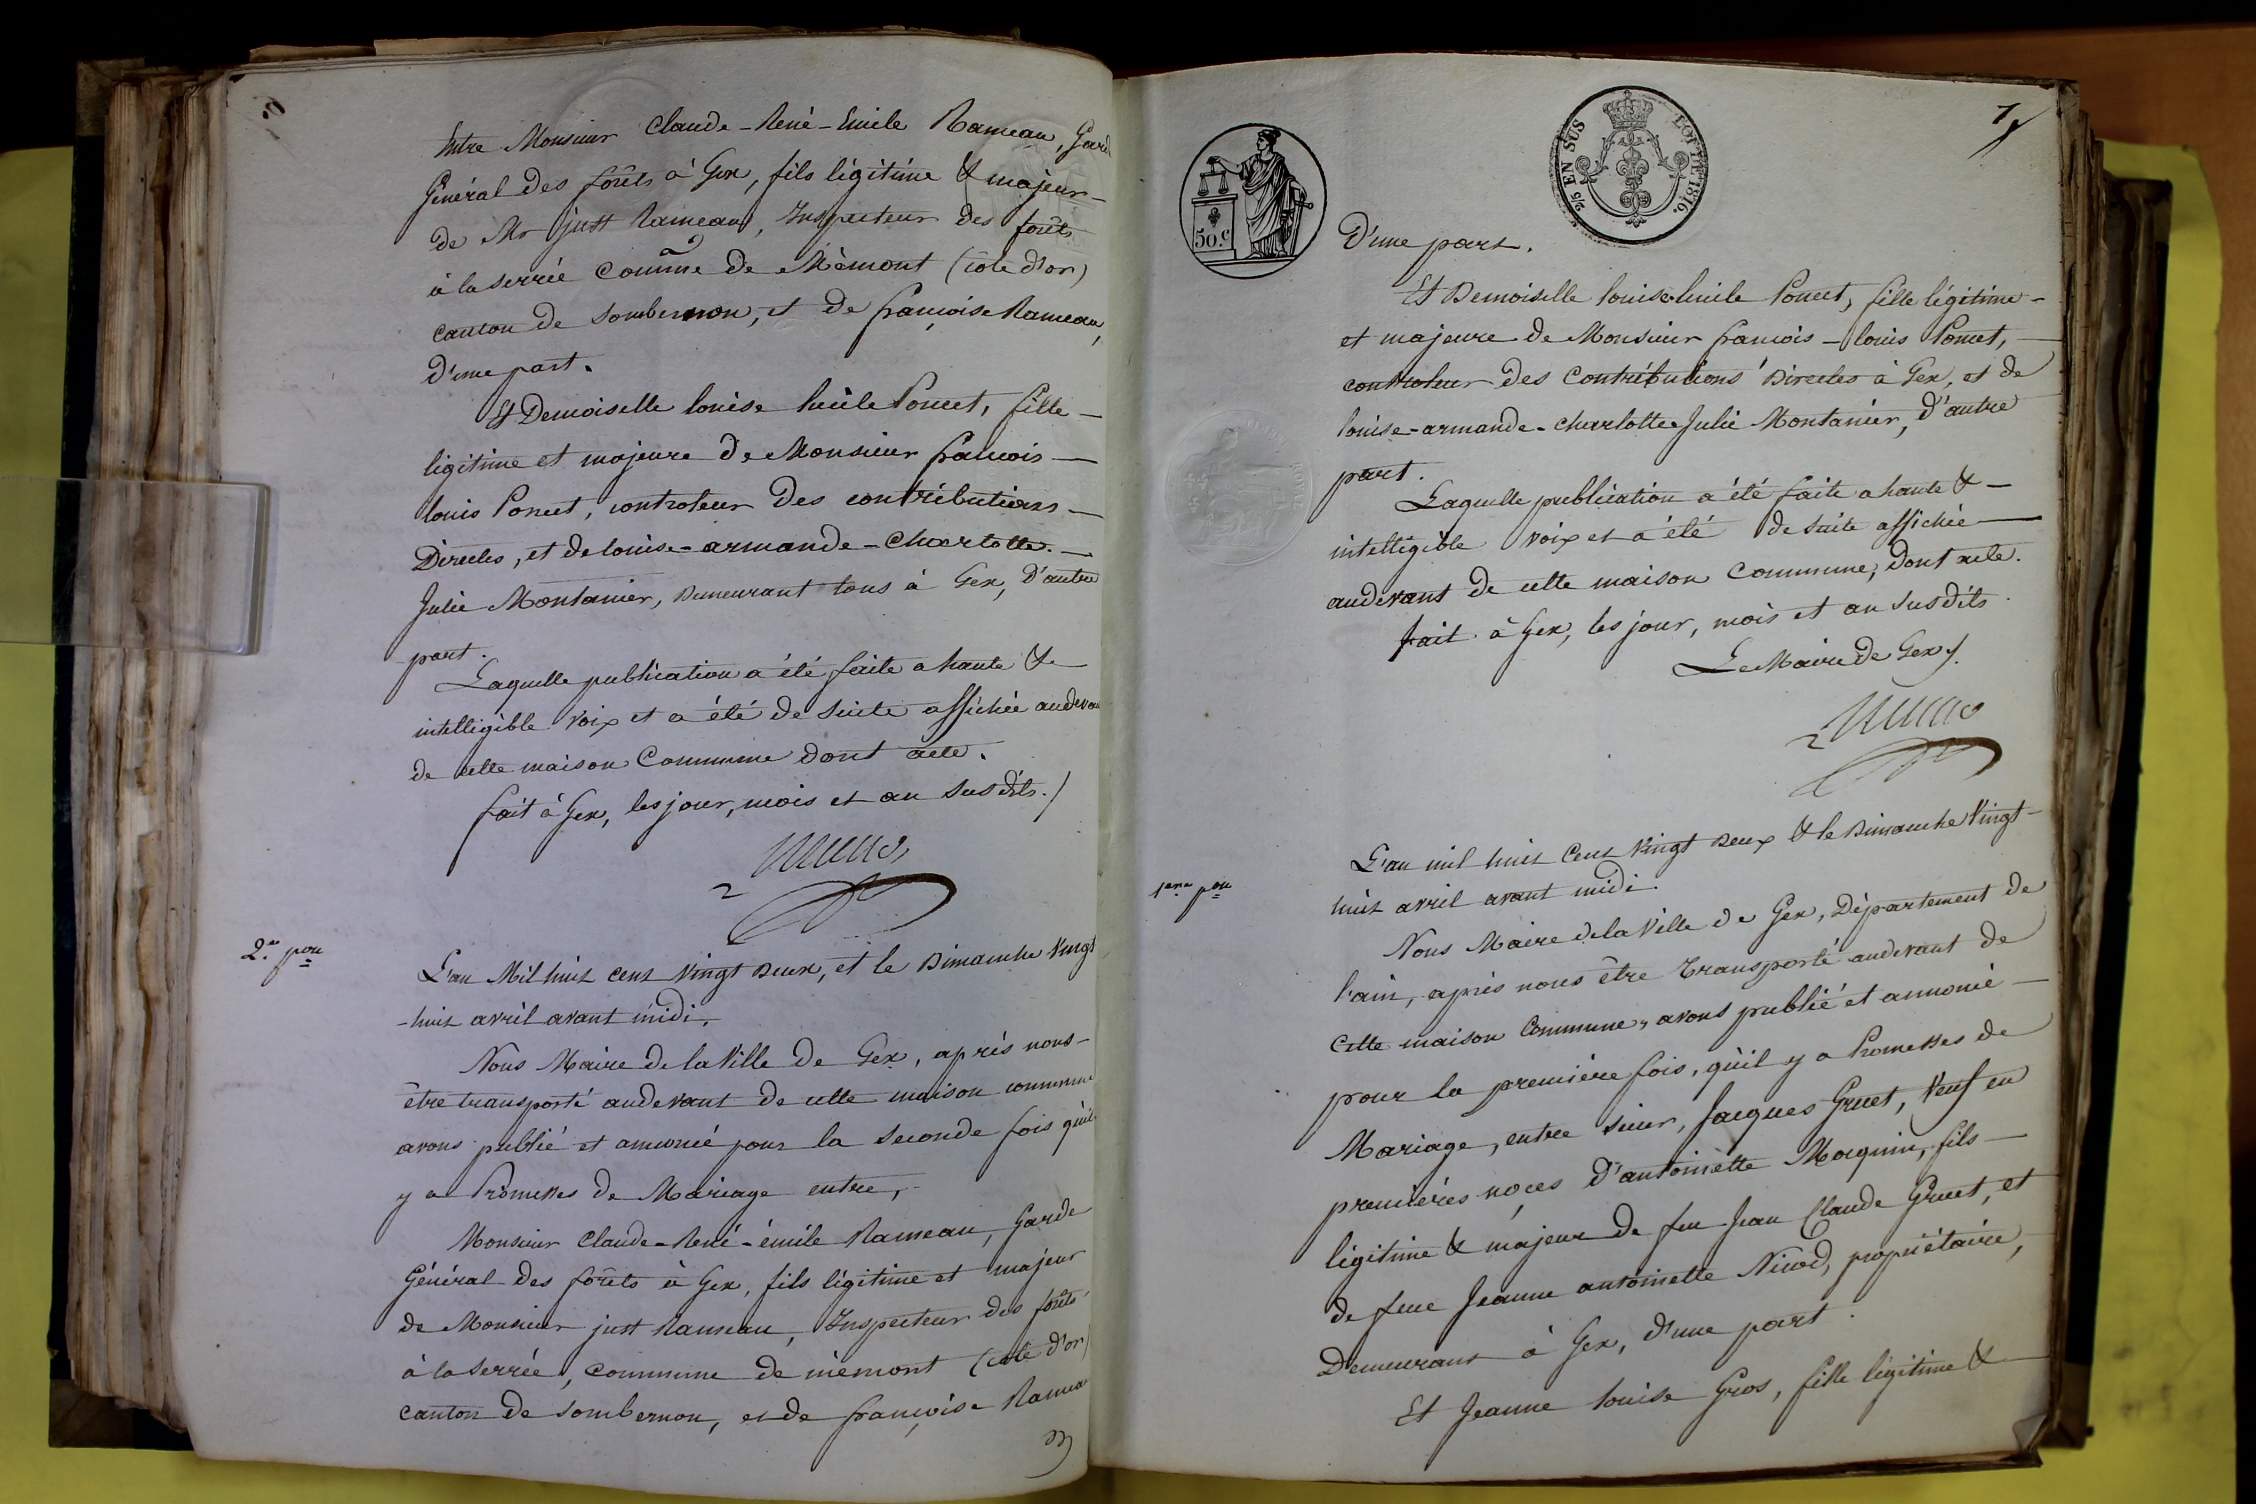 Entre Monsieur Claude-René-Emile Rameau, Garde
Général des forêts à Gex, fils légitime & majeur
de Mr just Rameau, Inspecteur des forêts
à la serrée Commune de Mémont (côte d'or)
canton de sombernon, et de françoise Rameau,
d'une part.
Et Demoiselle louise lucile Poncet, fille
légitime et majeure de Monsieur francois
louis Poncet, controleur des contributions
Directes, et de louise-armande-charlotte
Julie Montanier, demeurant tous à Gex, d'autre
part.
Laquelle publication a été faite a haute &
intelligible voix et a été de suite affichée audevant
de cette maison Commune dont acte.
fait à Gex, les jour, mois et an susdits./
2.e pon
L'an Mil huit cent vingt deux, et le dimanche vingt
-huit avril avant midi.
Nous Maire de la Ville de Gex, après nous
être transporté audevant de cette maison commune
avons publié et annoncé pour la seconde fois qu'il
y a Promesses de Mariage entre,
Monsieur Claude-René-émile Rameau, Garde
Général des forêts à Gex, fils légitime et majeur
de Monsieur just Rameau, Inspecteur des forêts
à la serrée, commune de mémont (côte d'or)
canton de sombernon, et de françoise Rameau
7
50.c
2/5 EN SUS
LOI DE 1816.
D'une part.
Et Demoiselle louise lucile Poncet, fille légitime
et majeure de Monsieur francois-louis Poncet,
controleur des Contributions Directes à Gex, et de
louise-armande-charlotte Julie Montanier, d'autre
part.
Laquelle publication a été faite a haute &
intelligible voix et a été de suite affichée
audevant de cette maison commune, dont acte.
fait à Gex, les jour, mois et an susdits
Le Maire de Gex/.
1ere pon
L'an mil huit cent vingt deux & le dimanche vingt-
huit avril avant midi.
Nous Maire de la Ville de Gex, Département de
l'ain, après nous être transporté audevant de
cette maison Commune, avons publié et annoncé
pour la première fois, qu'il y a Promesses de
Mariage, entre sieur, Jacques Gruet, Veuf en
premières noces d'antoinette Mocquin, fils
légitime & majeur de feu Jean Claude Gruet, et
de feue Jeanne antoinette Nicod, propriétaire,
Demeurant à Gex, d'une part.
Et Jeanne louise Gros, fille légitime &